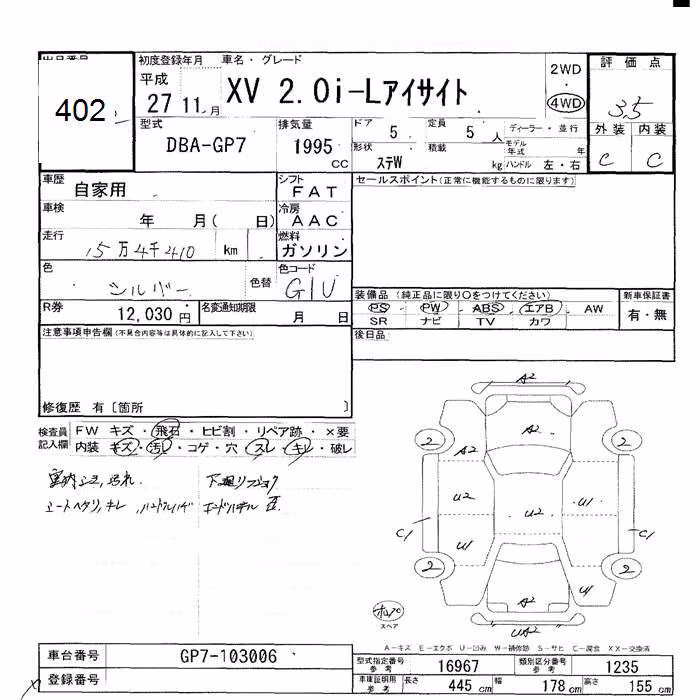 出品番号
402
初度登録年月
平成
27 11 月
車名・グレード
XV 2.0i-Lアイサイト
2WD
・
4WD
評価点
3.5
外装 内装
C C
型式
DBA-GP7
排気量
1995
CC
ドア 5
定員 5 人
ディーラー・並行
形状
ステW
積載 kg
モデル年式 年
ハンドル 左・右
車歴
自家用
シフト
FAT
セールスポイント(正常に機能するものに限ります)
車検
年 月( 日)
冷房
AAC
走行
15万4千410 km
燃料
ガソリン
色
シルバー
色替
色コード
G1U
装備品 (純正品に限り○をつけてください)
PS ・ PW ・ ABS ・ エアB ・ AW
SR ナビ TV カワ
新車保証書
有・無
R券
12,030 円
名変通知期限
月 日
後日品
注意事項申告欄(不具合内容等は具体的に記入して下さい)
修復歴 有〔箇所 〕
検査員記入欄
FW キズ・飛石・ヒビ割・リペア跡・×要
内装 キズ・汚レ・コゲ・穴・スレ・キレ・破レ
A2
A2
2
2
A2
U2
U2
U1
C1
C1
U1
2
2
A2
U1
UA2
スペア
A-キズ E-エクボ U-凹み W-補修跡 S-サビ C-腐食 XX-交換済
車台番号
GP7-103006
登録番号
型式指定番号
参考
16967
類別区分番号
参考
1235
車庫証明用
参考
長さ 445 cm 幅 178 cm 高さ 155 cm